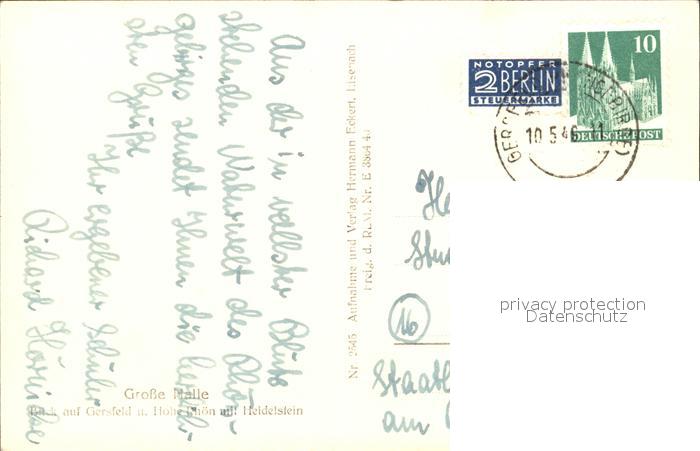 Aus der in vollster Blüte
stehenden Naturwelt des Rhön-
gebirges sendet Ihnen die herzlich-
sten Grüße
Ihr ergebener Schüler
Richard
Große Halle
Blick auf Gersfeld u. Hohe Rhön mit Heidelstein
Nr. 2645 Aufnahme und Verlag Hermann Eckert, Eisenach
Freig. d. RLM. Nr. E
NOTOPFER
2 BERLIN
STEUERMARKE
10
DEUTSCHE POST
10.5.4
He
Stu
(16)
Staatl
am
privacy protection
Datenschutz